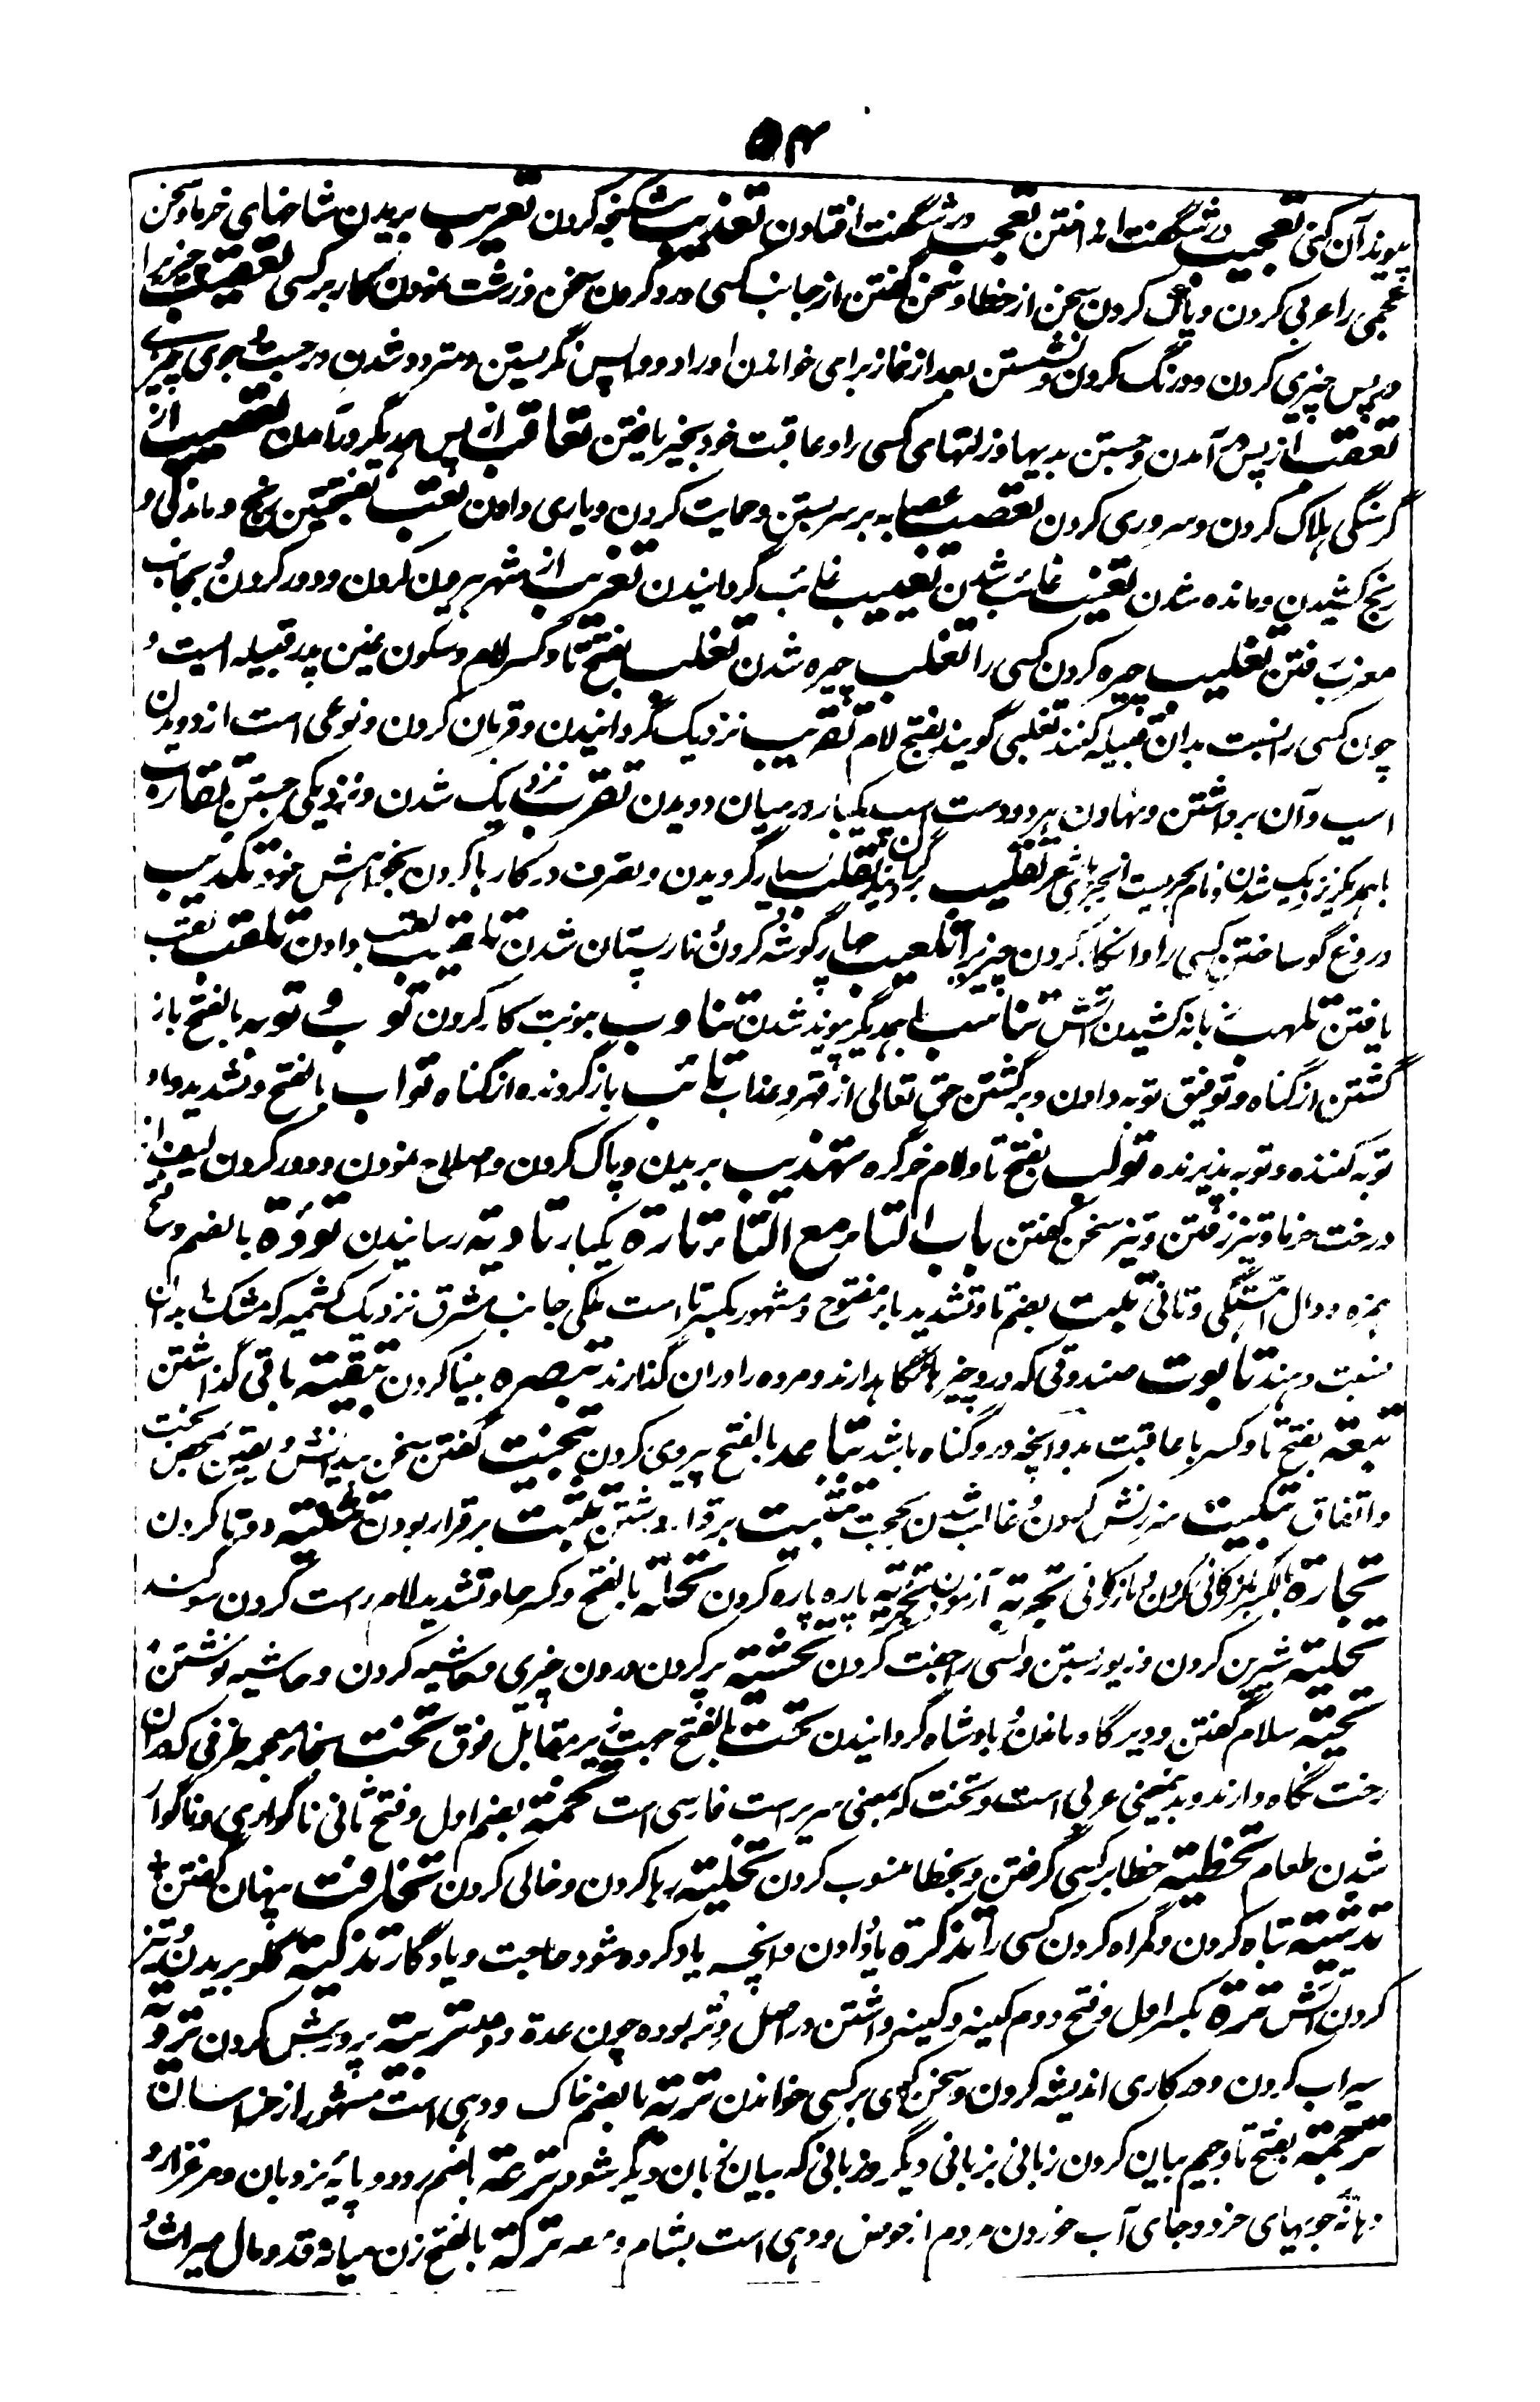 ۵۴
پیوند آن کنی تعجیب در شگفت انداختن تعجب در شگفت افتادن تعذیب شکنجه کردن تعریب بریدن شاخهای خرما و سخن
عجمی را عربی کردن و پاک کردن سخن از خطا و سخن گفتن از جانب کسی و رد کردن سخن و زشت نمودن کار بر کسی تعقیب چیزیرا
در پس چیزی کردن و درنگ کردن و نشستن بعد از نماز برای خواندن اوراد و واپس نگریستن و متردد شدن در جست و جوی چیزی
تعقب از پس در آمدن و جستن بدیها و زلتهای کسی را و عاقبت خود بخیر یافتن تعاقب از پس همدیگر در آمدن تعصیب از
گرسنگی هلاک کردن و سروری کردن تعصب عصابه بر سر بستن و حمایت کردن و یاری دادن تعب بفتحتین رنج و ماندگی و
رنج کشیدن و مانده شدن تغیب غائب شدن تغییب غائب گردانیدن تغریب از شهر بیرون کردن و دور کردن و بجانب
مغرب رفتن تغلیب چیره کردن کسی را تغلب چیره شدن تغلب بفتح تا و کسر لام و سکون غین پدر قبیله است و
چون کسی را نسبت بدان قبیله کنند تغلبی گویند بفتح لام تقریب نزدیک گردانیدن و قربان کردن و نوعی است از دویدن
اسپ و آن برداشتن و نهادن هر دو دست اسپ یکبار در میان دویدن تقرب نزدیک شدن و نزدیکی جستن تقارب
با همدیگر نزدیک شدن و نام بحریست از بحرهای شعر تقلیب برگردانیدن تقلب بسیار گردیدن و تصرف در کارها کردن بخواهش خود تکذیب
دروغ گو ساختن کسی را و انکار کردن چیزیرا تکعیب چار گوشه کردن و نار پستان شدن تلقیب لقب دادن تلقب لقب
یافتن تلهب زبانه کشیدن آتش تناسب با همدیگر پیوند شدن تناوب بنوبت کار کردن توب و توبه بالفتح باز
گشتن از گناه و توفیق توبه دادن و برگشتن حق تعالی از قهر و عذاب تائب باز گردنده از گناه تواب بالفتح و تشدید واو
توبه کننده و توبه پذیرنده تولب بفتح تا و لام خر کره تهذیب بریدن و پاک کردن و اصلاح نمودن و دور کردن لیف از
درخت خرما و تیز رفتن و تیز سخن گفتن باب التاء مع التاء تارة یکبار تادیة رسانیدن تؤدة بالضم و فتح
همزه و دال آهستگی و تانی تبت بضم تا و تشدید باء مفتوح و مشهور بکسر تا است ملکی جانب مشرق نزدیک کشمیر که مشک را بدان
نسبت دهند تابوت صندوقی که درو چیزها نگاهدارند و مرده را در آن گذارند تبصره بینا کردن تبقیة باقی گذاشتن
تبعة بفتح تا و کسر با عاقبت بد و آنچه درو گناه باشد تباعة بالفتح پیروی کردن تبخیت گفتن سخن بیدانش و یقین بمحض بخت
و اتفاق تبکیت سرزنش کردن و غالب شدن بحجت تثبیت برقرار داشتن تثبت برقرار بودن تثنیة دوتا کردن
تجارة بالکسر بازرگانی کردن و بازرگانی تجربة آزمودن تجزیة پاره پاره کردن تحلة بالفتح و کسر حا و تشدید لام راست کردن سوگند
تحلیة شیرین کردن و زیور بستن و کسی را جفت کردن تحشیة پر کردن درون چیزی و حاشیه کردن و حاشیه نوشتن و
تحیة سلام گفتن و دیرگاه ماندن و بادشاه گردانیدن تحت بالفتح جهت زیر مقابل فوق تخت بخاء معجمه ظرفی که در آن
رخت نگاه دارند و بدینمعنی عربی است و تخت که بمعنی سریر است فارسی است تخمة بضم اول و فتح ثانی ناگواری و ناگوار
شدن طعام تخطیة خطا بر کسی گرفتن و بخطا منسوب کردن تخلیة رها کردن و خالی کردن تخافت پنهان گفتن
تدسیة تباه کردن و گمراه کردن کسی را تذکرة یاد دادن و آنچه یاد کرده شود حاجت و یادگار تذکیة گلو بریدن و تیز
کردن آتش ترة بکسر اول و فتح دوم کینه و کینه داشتن در اصل وتر بوده چون عدة و وعد تربیة پرورش کردن ترویة
سیراب کردن و در کاری اندیشه کردن و سخن کسی بر کسی خواندن تربة بالضم خاک و دهی است مشهور از خراسان
ترجمة بفتح تا و جیم بیان کردن زبانی بزبانی دیگر و زبانی که بیان بزبان دیگر شود ترعة بالضم رود و پایه نردبان و مرغزار و
دهانه جویهای خرد و جای آب خوردن مردم از حوض و دهی است بشام و مصر ترکة بالفتح زن میانه قد و مال میراث و